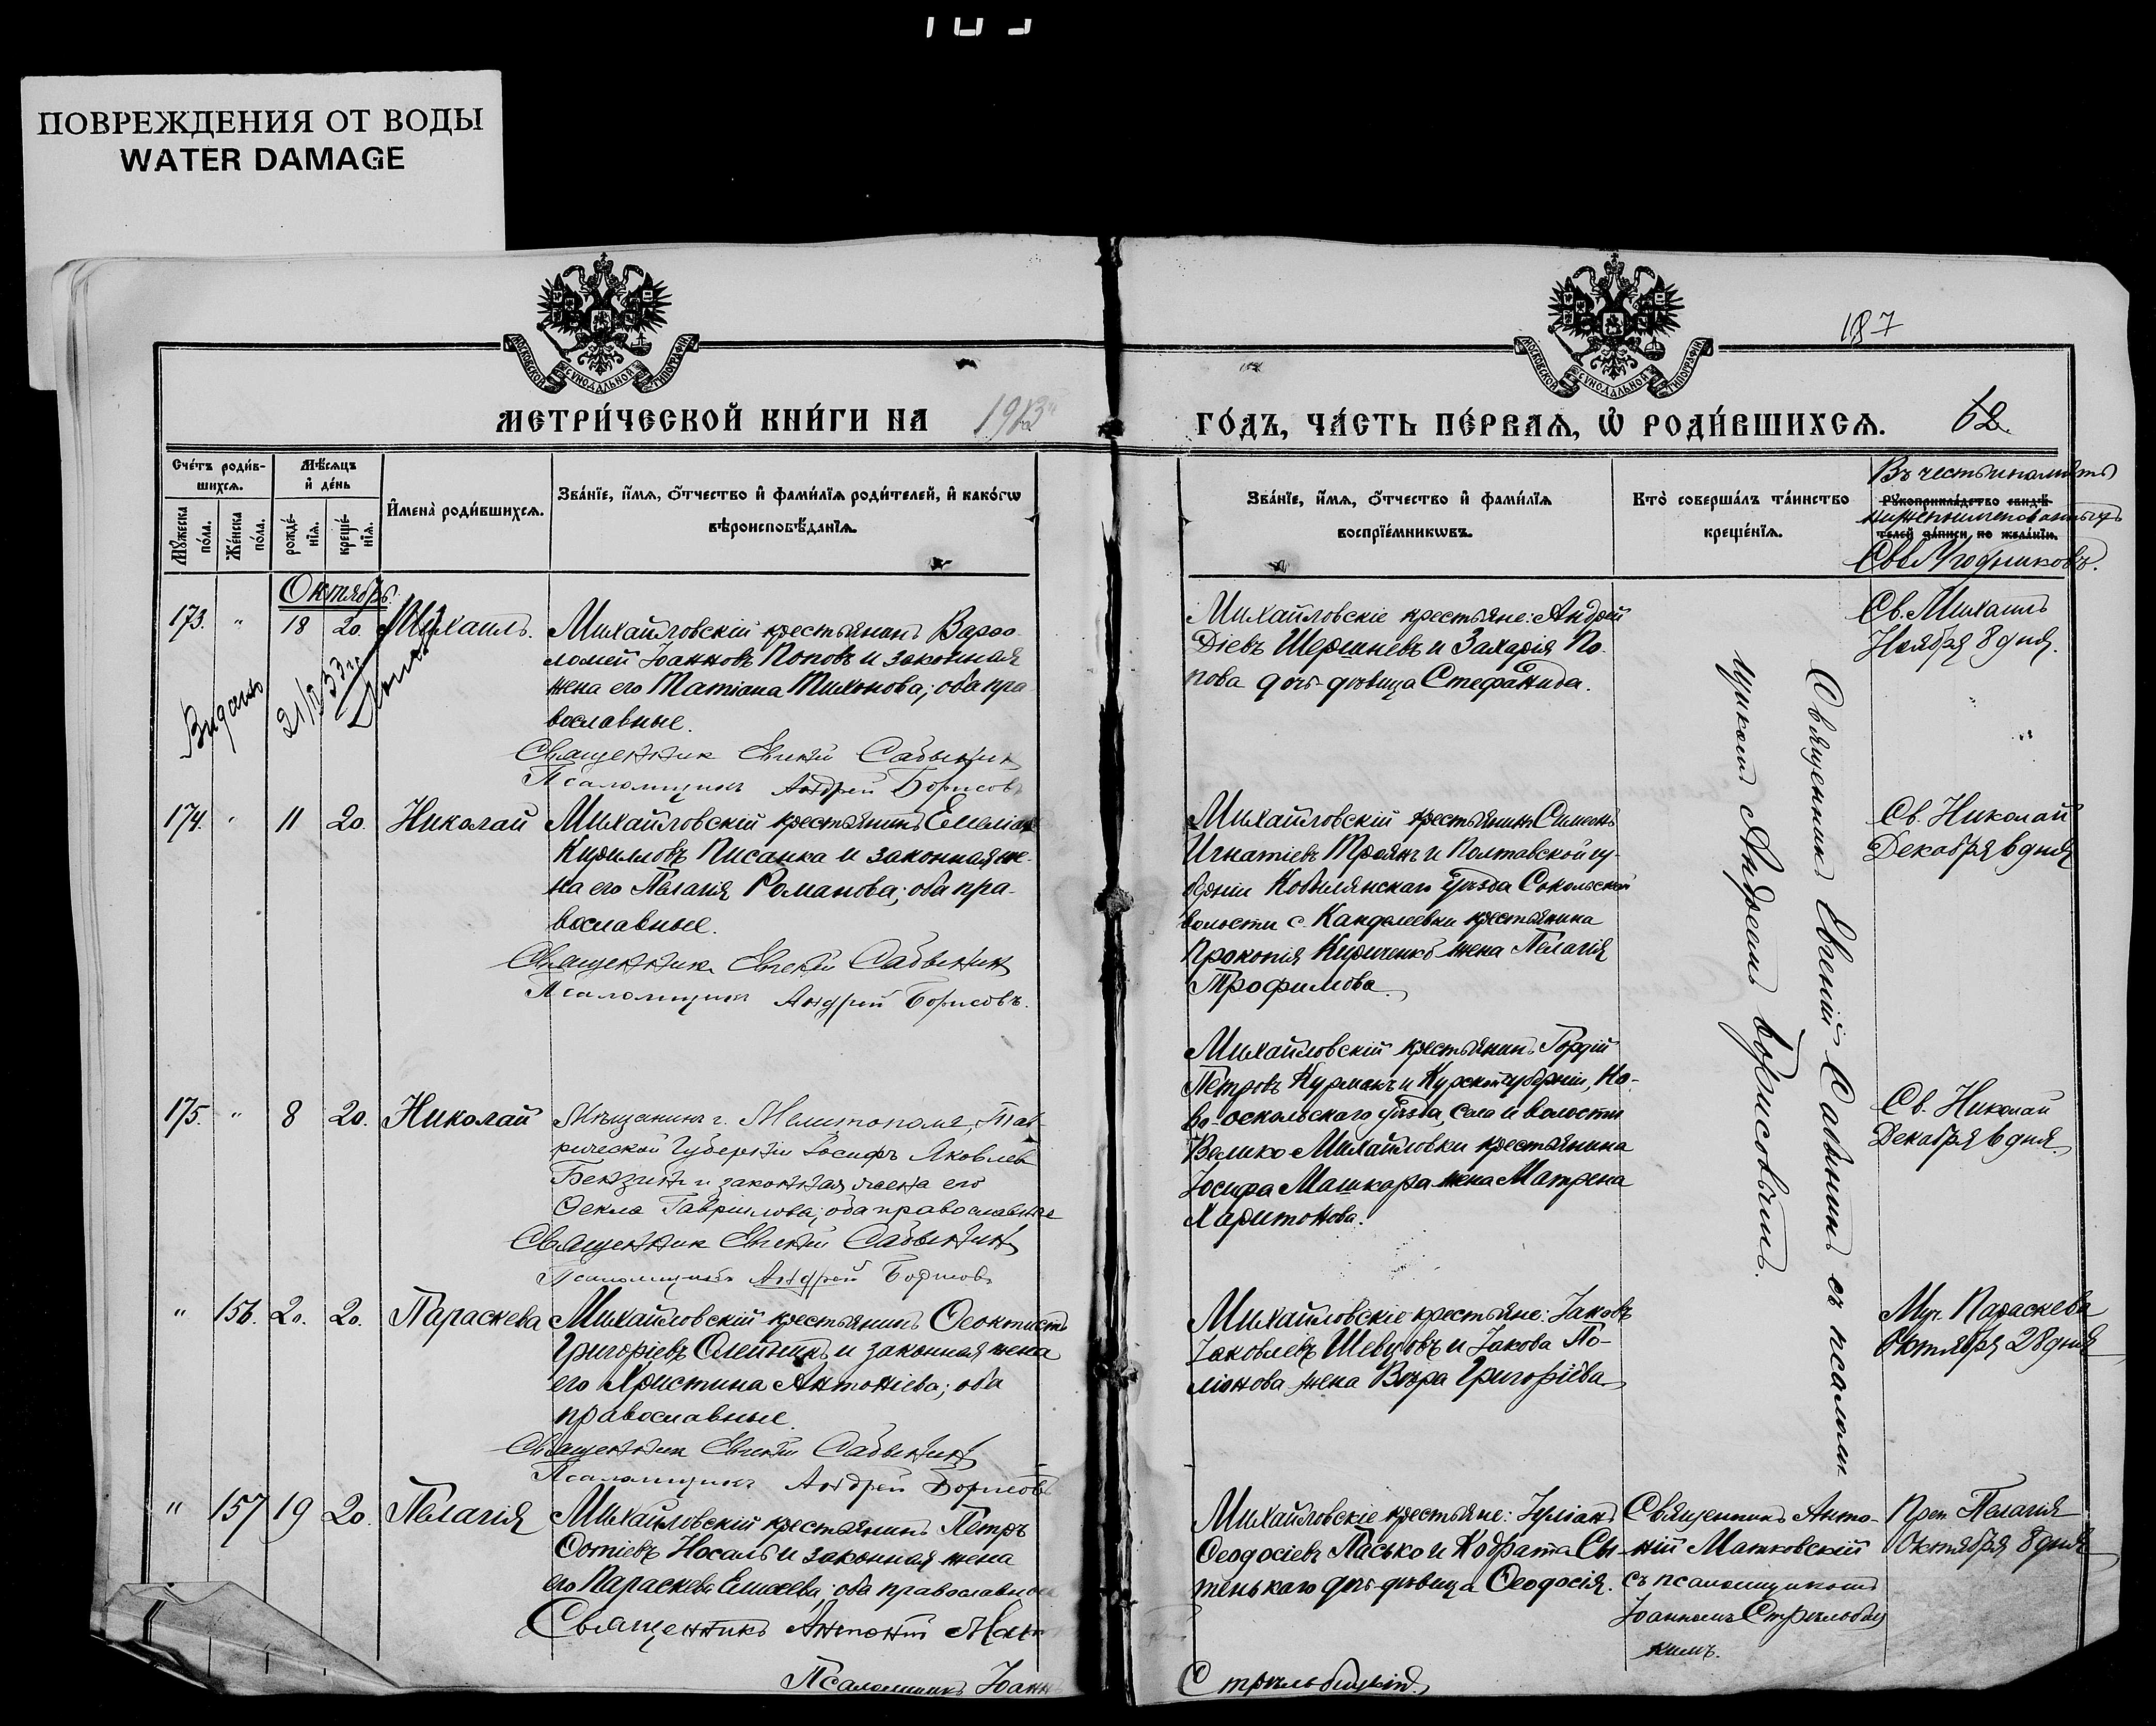 ПОВРЕЖДЕНИЯ ОТ ВОДЫ
WATER DAMAGE
187
МОСКОВСКОЙ СѴНОДАЛЬНОЙ ТИПОГРАФІИ
МОСКОВСКОЙ СѴНОДАЛЬНОЙ ТИПОГРАФІИ
МЕТРИ́ЧЕСКОЙ КНИ́ГИ НА 1913 ГО́ДЪ, ЧА́СТЬ ПЕ́РВАѦ, Ѡ РОДИ́ВШИХСѦ.
62
Сче́тъ роди́в-
шихсѧ.
Мꙋ́жеска по́ла.
Же́нска по́ла.
Мѣ́сѧцъ
и҆ де́нь
рожде́-
нїѧ.
креще́-
нїѧ.
И҆мена̀ роди́вшихсѧ.
Зва́нїе, и҆́мѧ, ѻ҆́тчество и҆ фами́лїѧ роди́телей, и҆ како́гѡ
вѣроисповѣ́данїѧ.
Зва́нїе, и҆́мѧ, ѻ҆́тчество и҆ фами́лїѧ
воспрїе́мникѡвъ.
Кто̀ соверша́лъ та́инство
креще́нїѧ.
Въ честь и память
Рꙋкоприкла́дство свидѣ́-
нижепоименованныхъ
телей за́писи по жела́нїю.
Свв. Угодниковъ.
Октябрь
173. " 18 20. Михаилъ.
Михайловскій крестьянинъ Варѳо-
ломей Іоанновъ Поповъ и законная
жена его Татіана Тихонова; оба пра-
вославные.
Священник Евгений Савынин
Псаломщикъ Андрей Борисовъ
Видано
21/IX 33 г.
Михайловскіе крестьяне: Андрей
Діевъ Шершневъ и Захарія По-
пова дочь-дѣвица Стефанида.
Св. Михаилъ
Ноября 8 дня.
174. " 11 20. Николай
Михайловскій крестьянинъ Емеліанъ
Кирилловъ Писанка и законная же-
на его Пелагія Романова; оба пра-
вославные.
Священник Евгений Савынин
Псаломщикъ Андрей Борисовъ.
Михайловскій крестьянинъ Симеонъ
Игнатіевъ Троянъ и Полтавской гу-
берніи Кобылянскаго уѣзда Сокольской
волости с. Кандалеевки крестьянина
Прокопія Кириченко жена Пелагія
Трофимова.
Св. Николай
Декабря 6 дня
175. " 8 20. Николай
Мѣщанинъ г. Мелитополя, Тав-
рической губерніи Іосифъ Яковлев
Бензин и законная жена его
Ѳекла Гаврилова; оба православные
Священник Евгений Савынин
Псаломщикъ Андрей Борисовъ
Михайловскій крестьянинъ Гордій
Петровъ Курманъ и Курской губерніи, Но-
во-оскольскаго уѣзда, села и волости
Велико Михайловки крестьянина
Іосифа Машкара жена Матрена
Харитонова.
Св. Николай
Декабря 6 дня.
Священникъ Евгеній Савынинъ съ псалом-
щикомъ Андреемъ Борисовымъ.
" 156. 20. 20. Параскева
Михайловскій крестьянинъ Ѳеоктистъ
Григоріевъ Олейникъ и законная жена
его Христина Антоніева; оба
православные.
Священник Евгений Савынин
Псаломщикъ Андрей Борисовъ
Михайловскіе крестьяне: Іаковъ
Іаковлевъ Шевцовъ и Іакова По-
ліонова жена Вѣра Григоріева
Муч. Параскева
Октября 28 дня
" 157 19 20. Пелагія
Михайловскій крестьянинъ Петръ
Ѳотіевъ Носаль и законная жена
его Параскева Елисеева; оба православные
Священникъ Антоній Мат
Псаломщикъ Іоаннъ
Стрѣльбицкій.
Михайловскіе крестьяне: Іуліанъ
Ѳеодосіевъ Пасько и Кодрата Сы-
тенькаго дочь-дѣвица Ѳеодосія.
Священникъ Анто-
ній Матковскій
съ псаломщикомъ
Іоанномъ Стрѣльбиц
кимъ.
Преп. Пелагія
Октября 8 дня